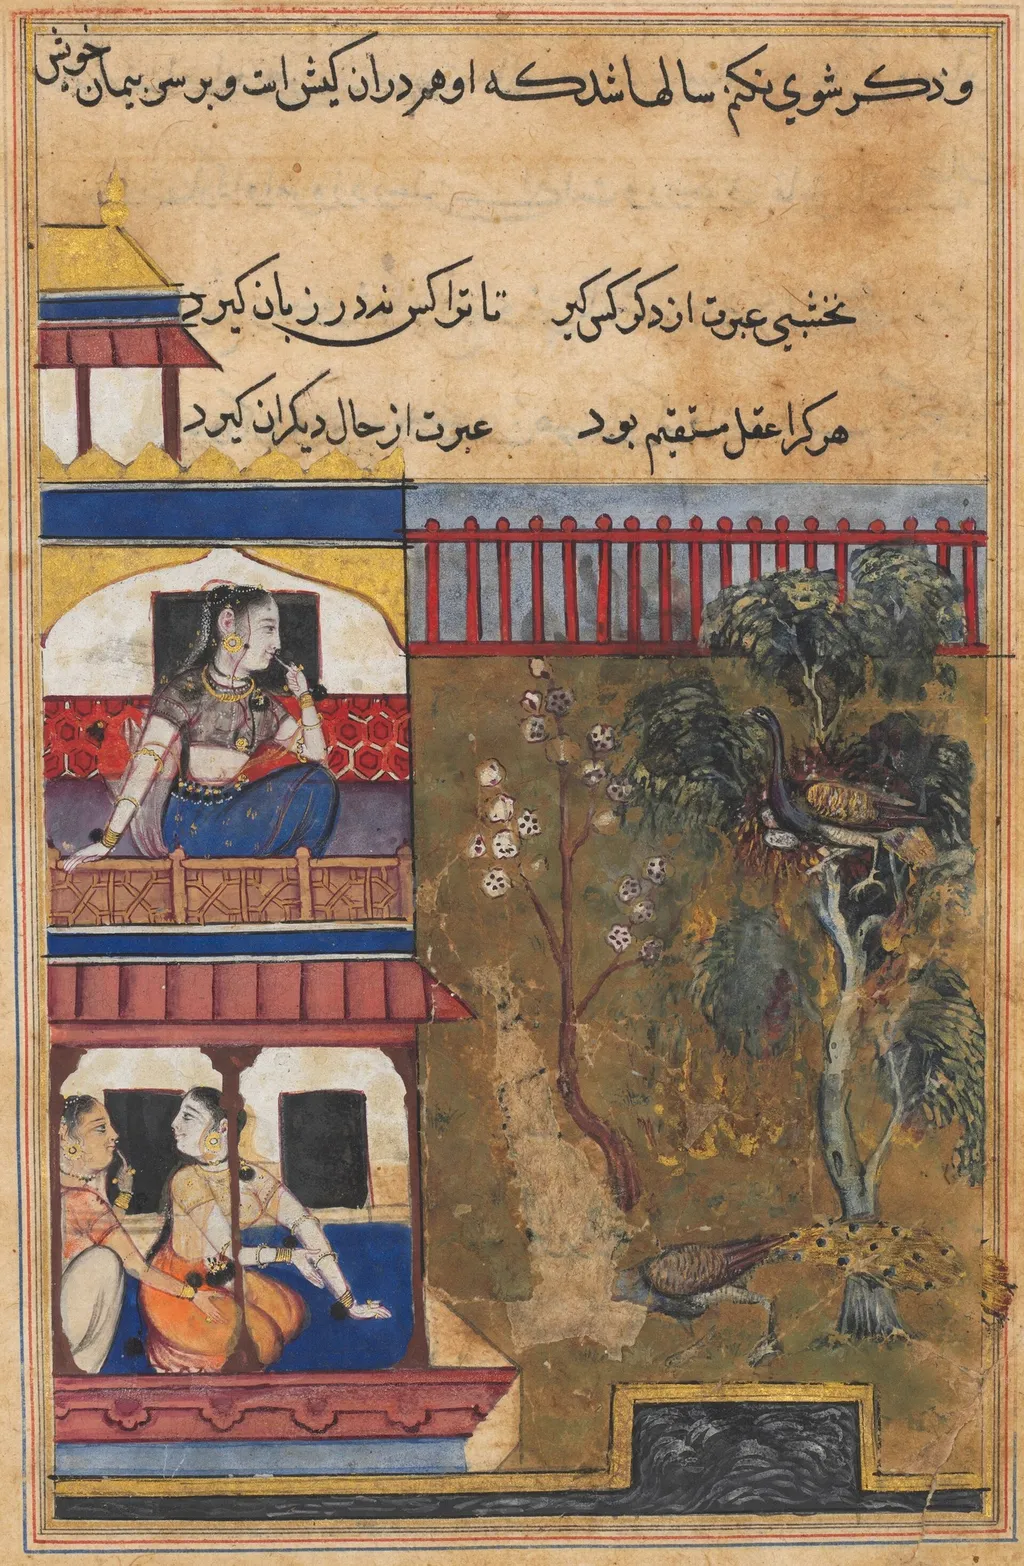 و ذکر شوي نکنم سالها شد که او هم دران کیش است و بر سر پیمان خویش
نخشبي عبرت از دکر کس کیر تا ترا کس نه در زبان کیرد
هر کرا عقل مستقیم بود عبرت از حال دیکران کیرد